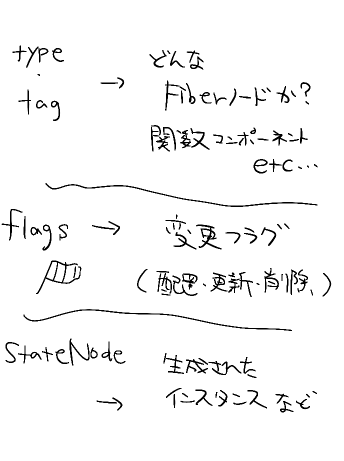 type
・
tag
→ どんな
Fiberノードか?
関数コンポーネント
etc...
flags → 変更フラグ
(配置・更新・削除、)
StateNode
→ 生成された
インスタンスなど